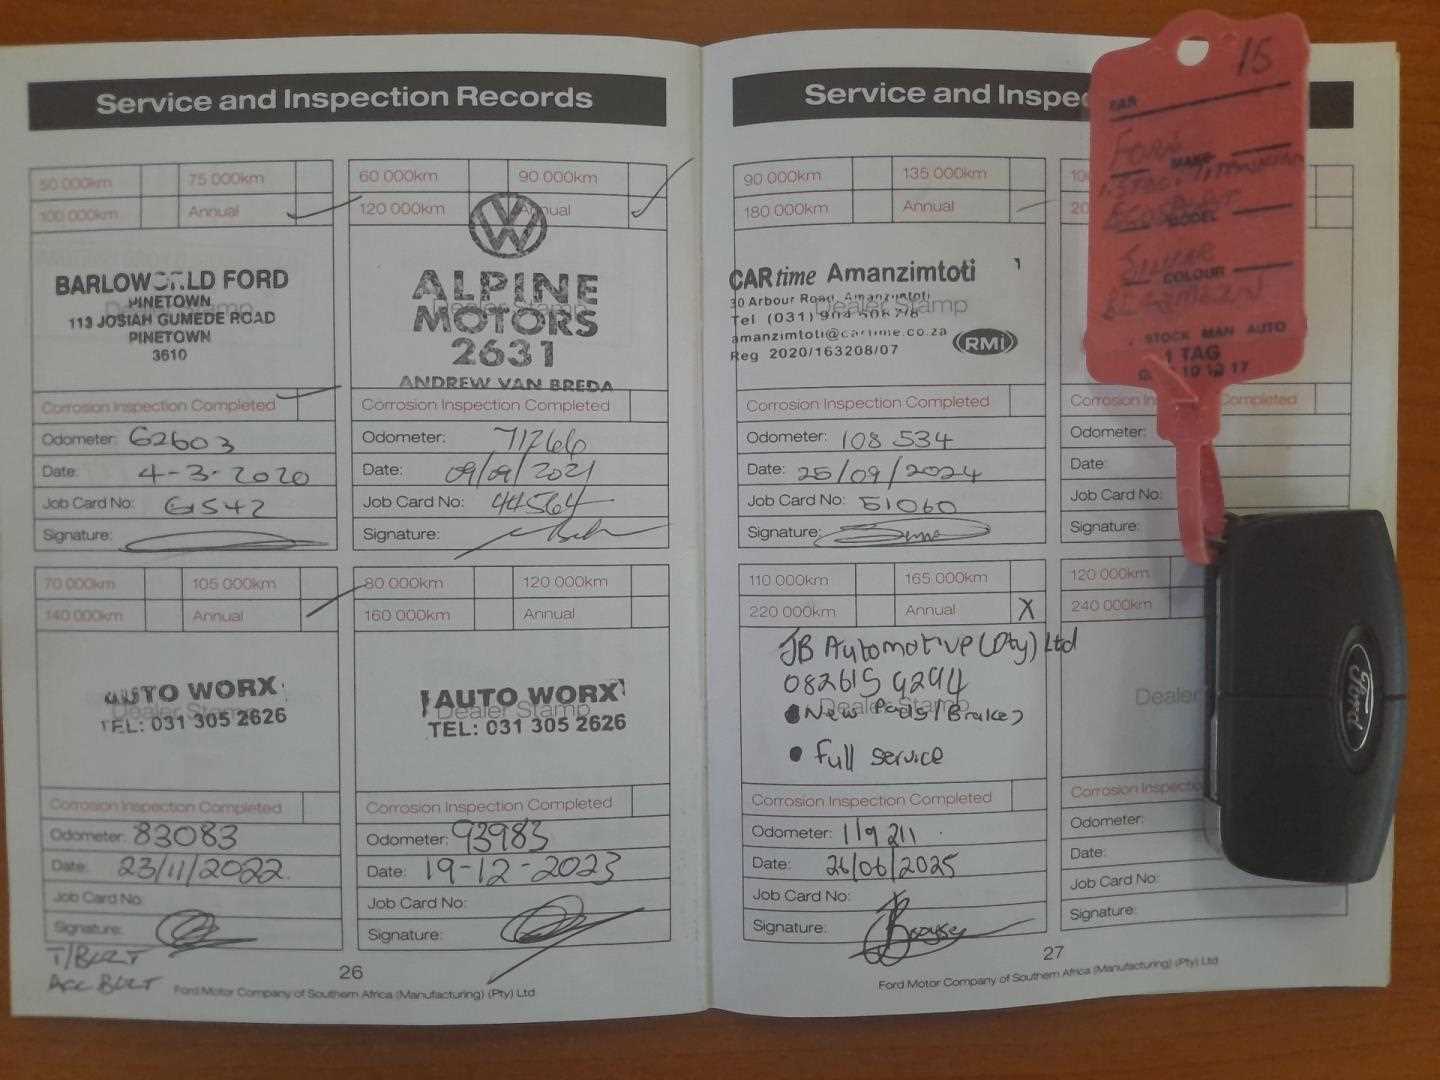 Service and Inspection Records
50 000km
75 000km
100 000km
Annual
BARLOWORLD FORD
PINETOWN
113 JOSIAH GUMEDE ROAD
PINETOWN
3610
Dealer Stamp
Corrosion Inspection Completed
Odometer: 62603
Date: 4-3-2020
Job Card No: 61542
Signature:
60 000km
90 000km
120 000km
Annual
ALPINE
MOTORS
2631
ANDREW VAN BREDA
Dealer Stamp
Corrosion Inspection Completed
Odometer: 71266
Date: 09/09/2021
Job Card No: 44564
Signature:
70 000km
105 000km
140 000km
Annual
AUTO WORX
TEL: 031 305 2626
Dealer Stamp
Corrosion Inspection Completed
Odometer: 83083
Date: 23/11/2022
Job Card No:
Signature:
T/BELT
ACC BELT
80 000km
120 000km
160 000km
Annual
AUTO WORX
TEL: 031 305 2626
Dealer Stamp
Corrosion Inspection Completed
Odometer: 93983
Date: 19-12-2023
Job Card No:
Signature:
26
Ford Motor Company of Southern Africa (Manufacturing) (Pty) Ltd
Service and Inspe
90 000km
135 000km
180 000km
Annual
CAR time Amanzimtoti
30 Arbour Road, Amanzimtoti
Tel (031)
amanzimtoti@cartime.co.za
Reg 2020/163208/07
RMi
Dealer Stamp
Corrosion Inspection Completed
Odometer: 108 534
Date: 25/09/2024
Job Card No: 51060
Signature:
110 000km
165 000km
220 000km
Annual X
JB Automotive (Pty) Ltd
082615 9294
• New Pads/Brakes
• Full service
Dealer Stamp
Corrosion Inspection Completed
Odometer: 119 211
Date: 26/06/2025
Job Card No:
Signature:
27
Ford Motor Company of Southern Africa (Manufacturing) (Pty) Ltd
10
20
Corrosion
Completed
Odometer:
Date:
Job Card No:
Signature:
120 000km
240 000km
Dealer
Corrosion Inspectio
Odometer:
Date:
Job Card No:
Signature:
15
CAR
FORD
MAKE
ECOSPORT
MODEL
SILVER
COLOUR
STOCK MAN AUTO
1 TAG
Ford